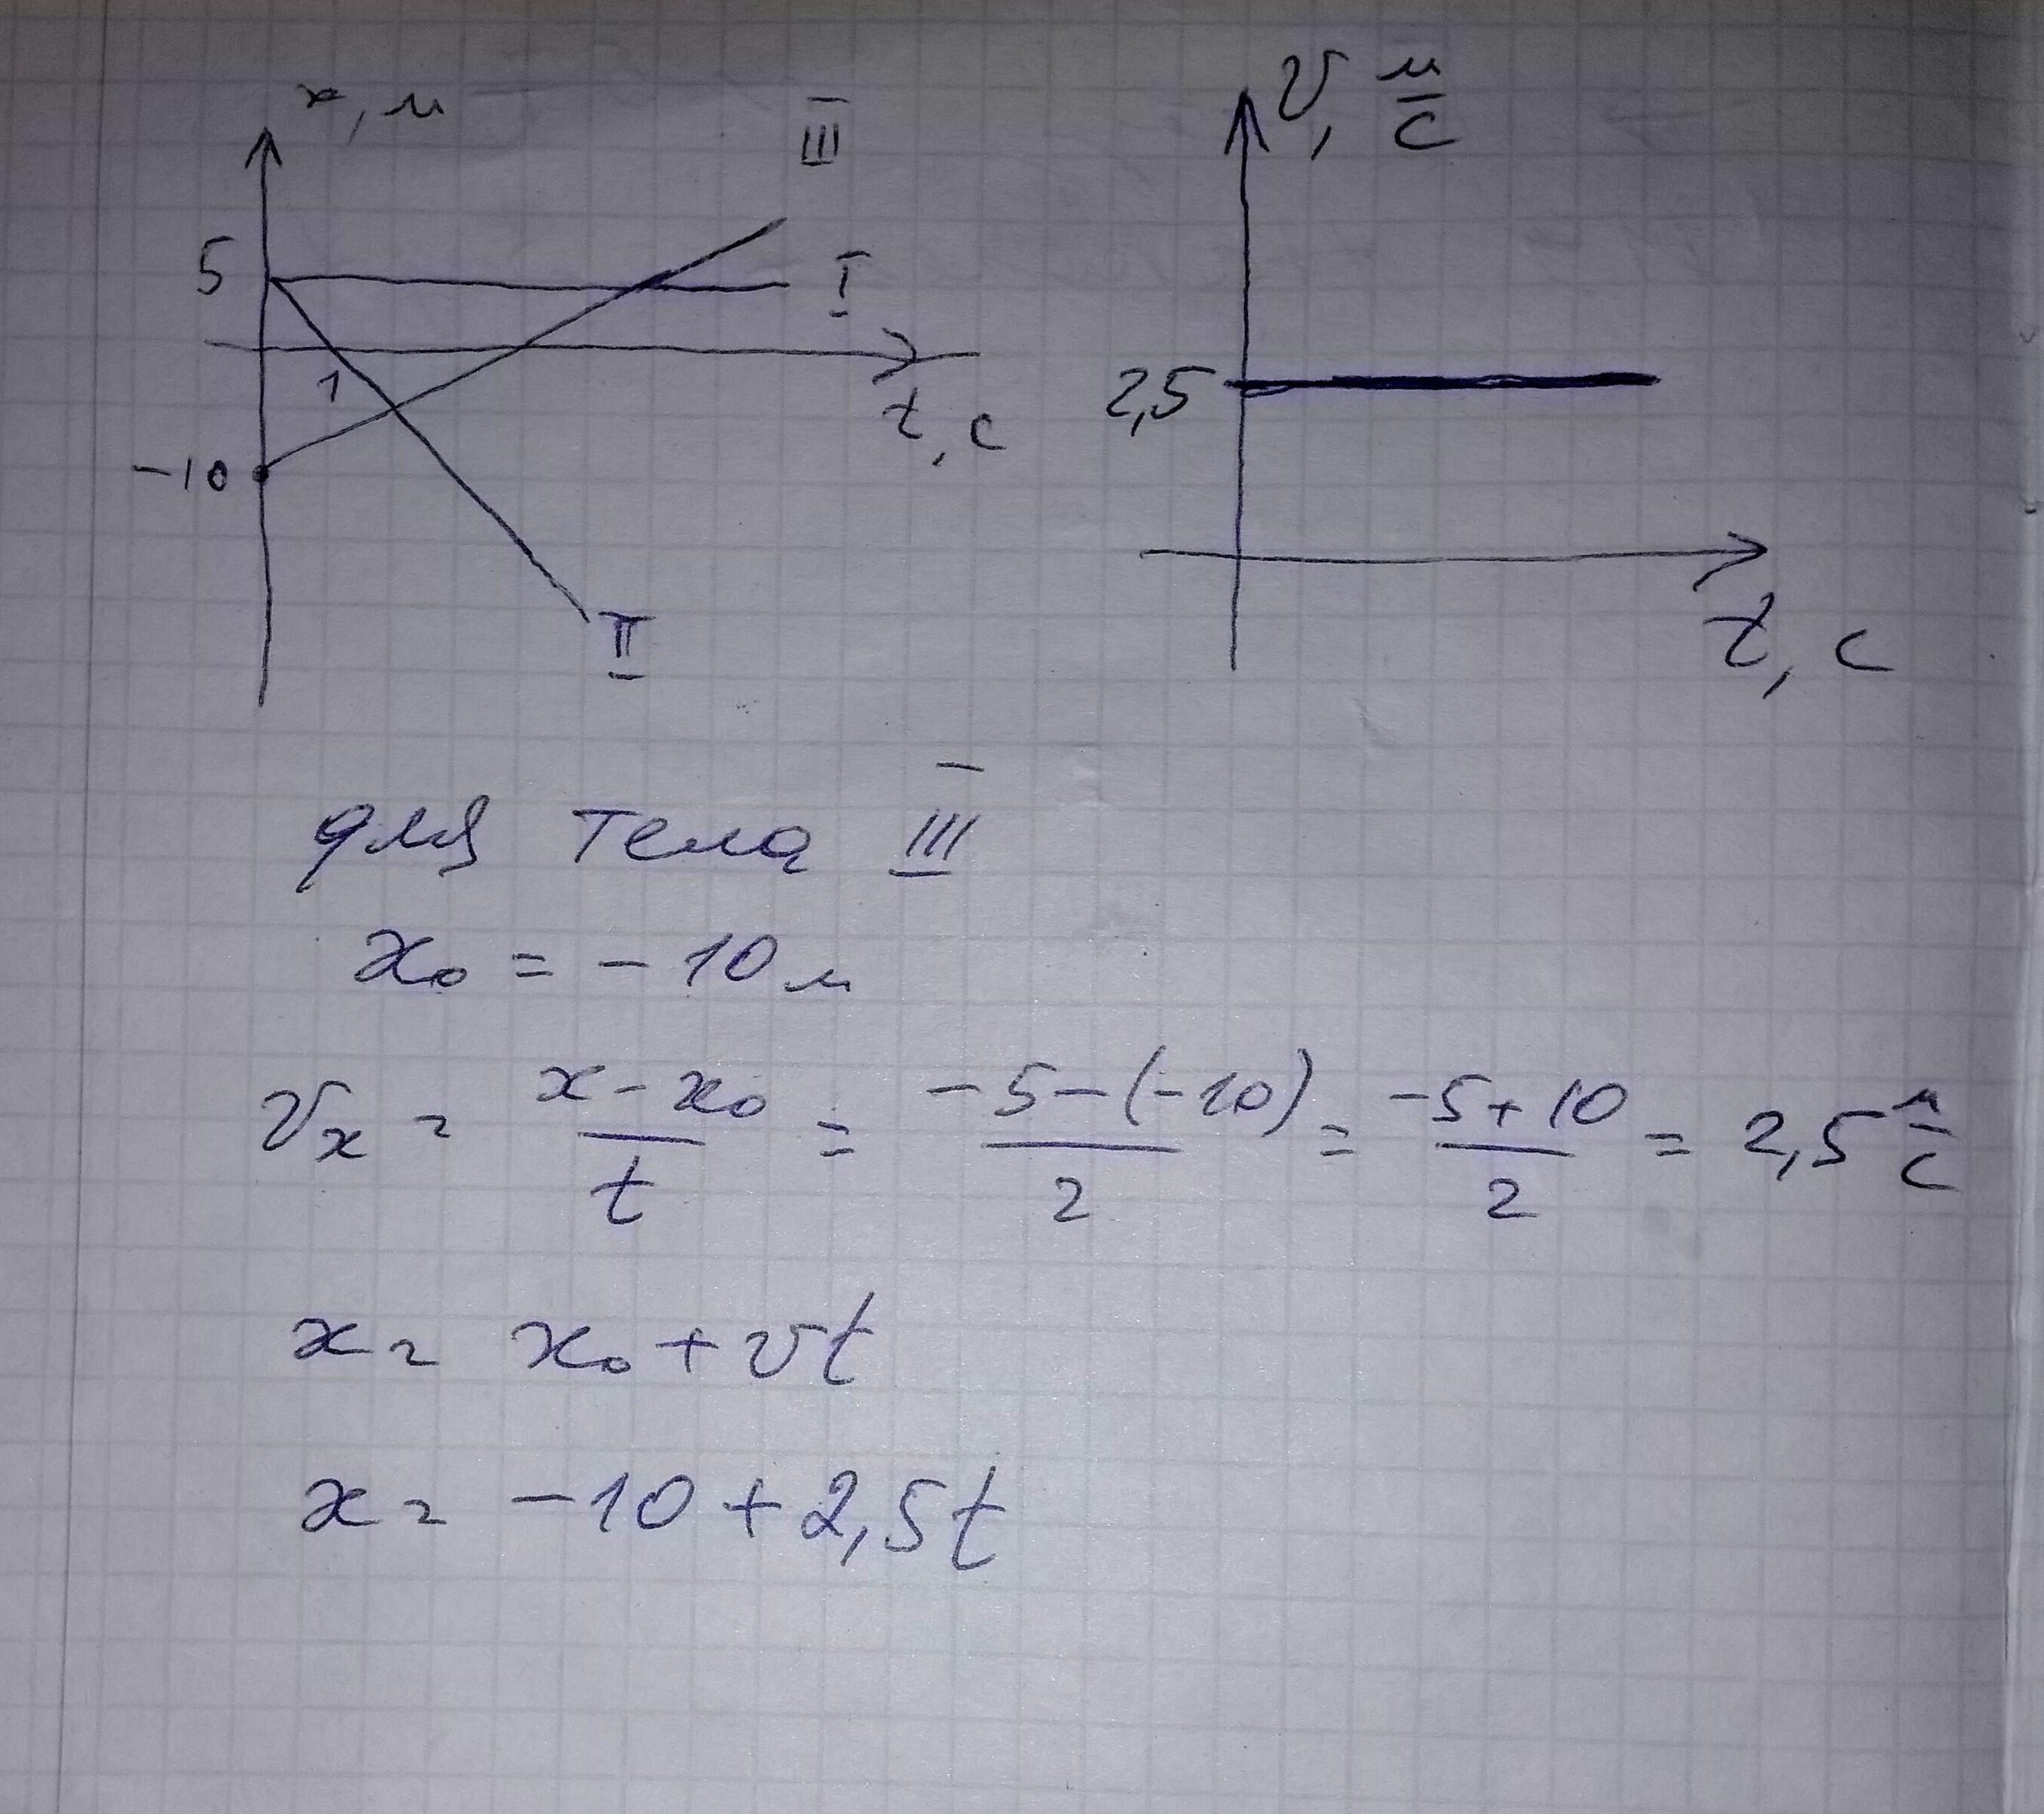 x, м
III
5
I
1
t, с
-10
II
V, м/с
2,5
t, с
для тела III
x₀ = - 10 м
Vx = (x - x₀)/t = (-5-(-10))/2 = (-5+10)/2 = 2,5 м/с
x = x₀ + vt
x = -10 + 2,5t